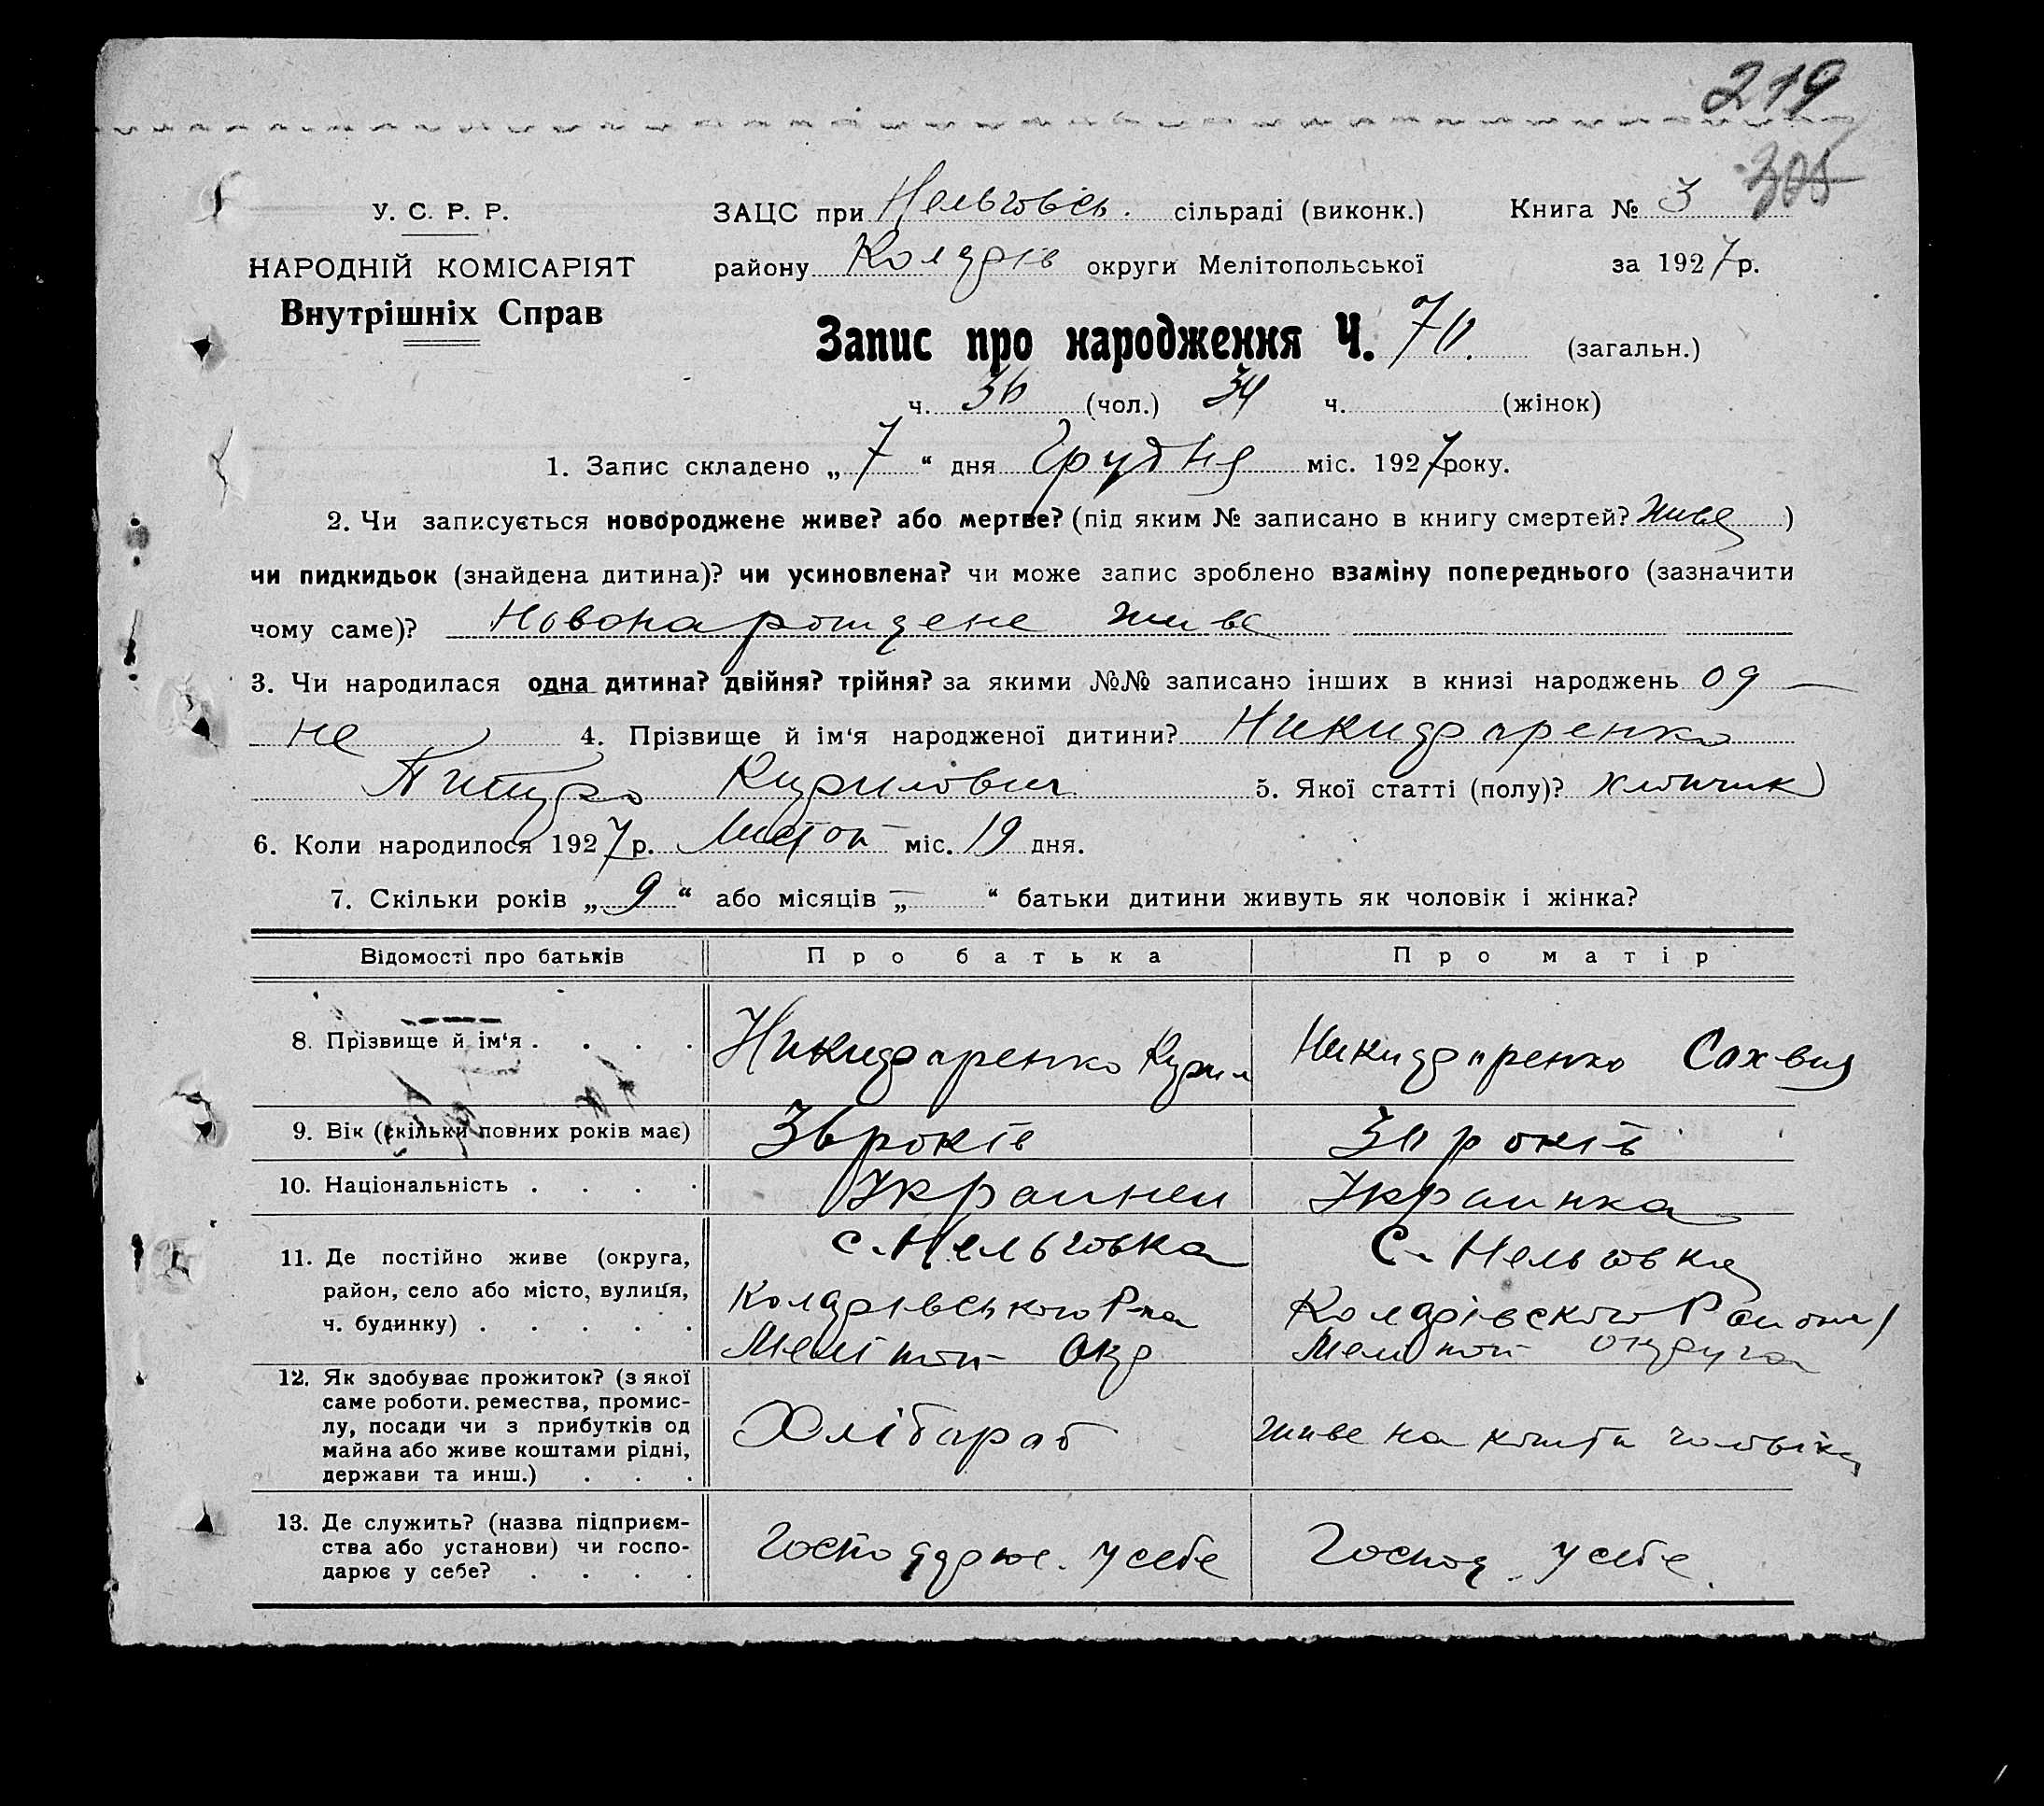 219
305
У. С. Р. Р.
ЗАЦС при Нельговсь. сільраді (виконк.) Книга № 3
НАРОДНІЙ КОМІСАРІЯТ
району Коларів округи Мелітопольської за 1927 р.
Внутрішніх Справ
Запис про народження Ч. 70. (загальн.)
ч. 36 (чол.) 34 ч. (жінок)
1. Запис складено „ 7 “ дня Грудня міс. 1927 року.
2. Чи записується новороджене живе? або мертве? (під яким № записано в книгу смертей? живе )
чи пидкидьок (знайдена дитина)? чи усиновлена? чи може запис зроблено взаміну попереднього (зазначити
чому саме)? Новонарождене живе
3. Чи народилася одна дитина? двійня? трійня? за якими №№ записано інших в книзі народжень од—
не 4. Прізвище й ім‘я народженої дитини?
Кирилович 5. Якої статті (полу)? хлопчик
6. Коли народилося 1927 р. Листоп міс. 19 дня.
7. Скільки років „ 9 “ або місяців „ — “ батьки дитини живуть як чоловік і жінка?
Відомості про батьків Про батька Про матір
8. Прізвище й ім‘я . . . . Кирил Сахвия
9. Вік (скільки повних років має) 36 років 30 років
10. Національність . . . . Украинец Украинка
11. Де постійно живе (округа, с. Нельговка С. Нельговка
район, село або місто, вулиця, Коларівського Р-на Коларівского Району
ч. будинку) . . . . . Меліпоп Окр Меліпоп округа
12. Як здобуває прожиток? (з якої
саме роботи. ремества, промис-
лу, посади чи з прибутків од Хлібароб живе на кошти чоловіка
майна або живе коштами рідні,
держави та инш.) . . .
13. Де служить? (назва підприєм-
ства або установи) чи госпо- Господарює. у себе Господ. у себе.
дарює у себе? . . . .